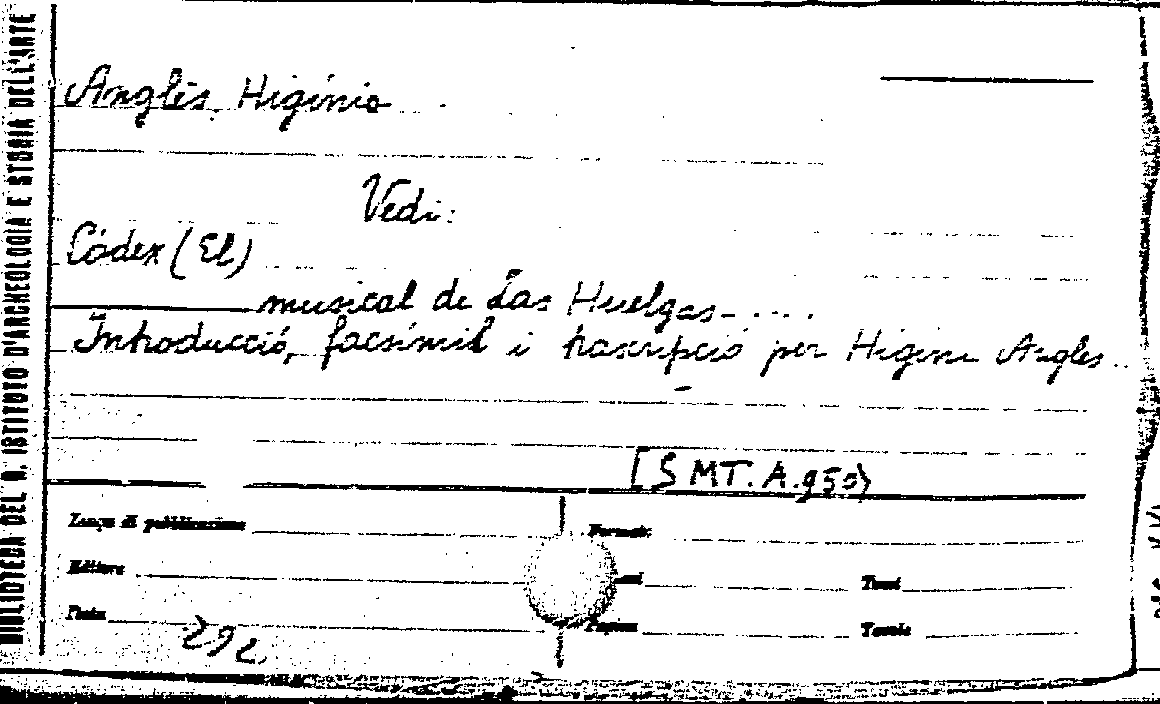 BIBLIOTECA DEL R. ISTITUTO D'ARCHEOLOGIA E STORIA DELL'ARTE
Anglès, Higinio
Vedi:
Códex (El)
musical de Las Huelgas.....
Introducció, facsímil i trascripció per Higini Anglès..
[S MT. A.950)
Luogo di pubblicazione
Formato
Editore
Tomi
Data 292.
Pagine
Tavole